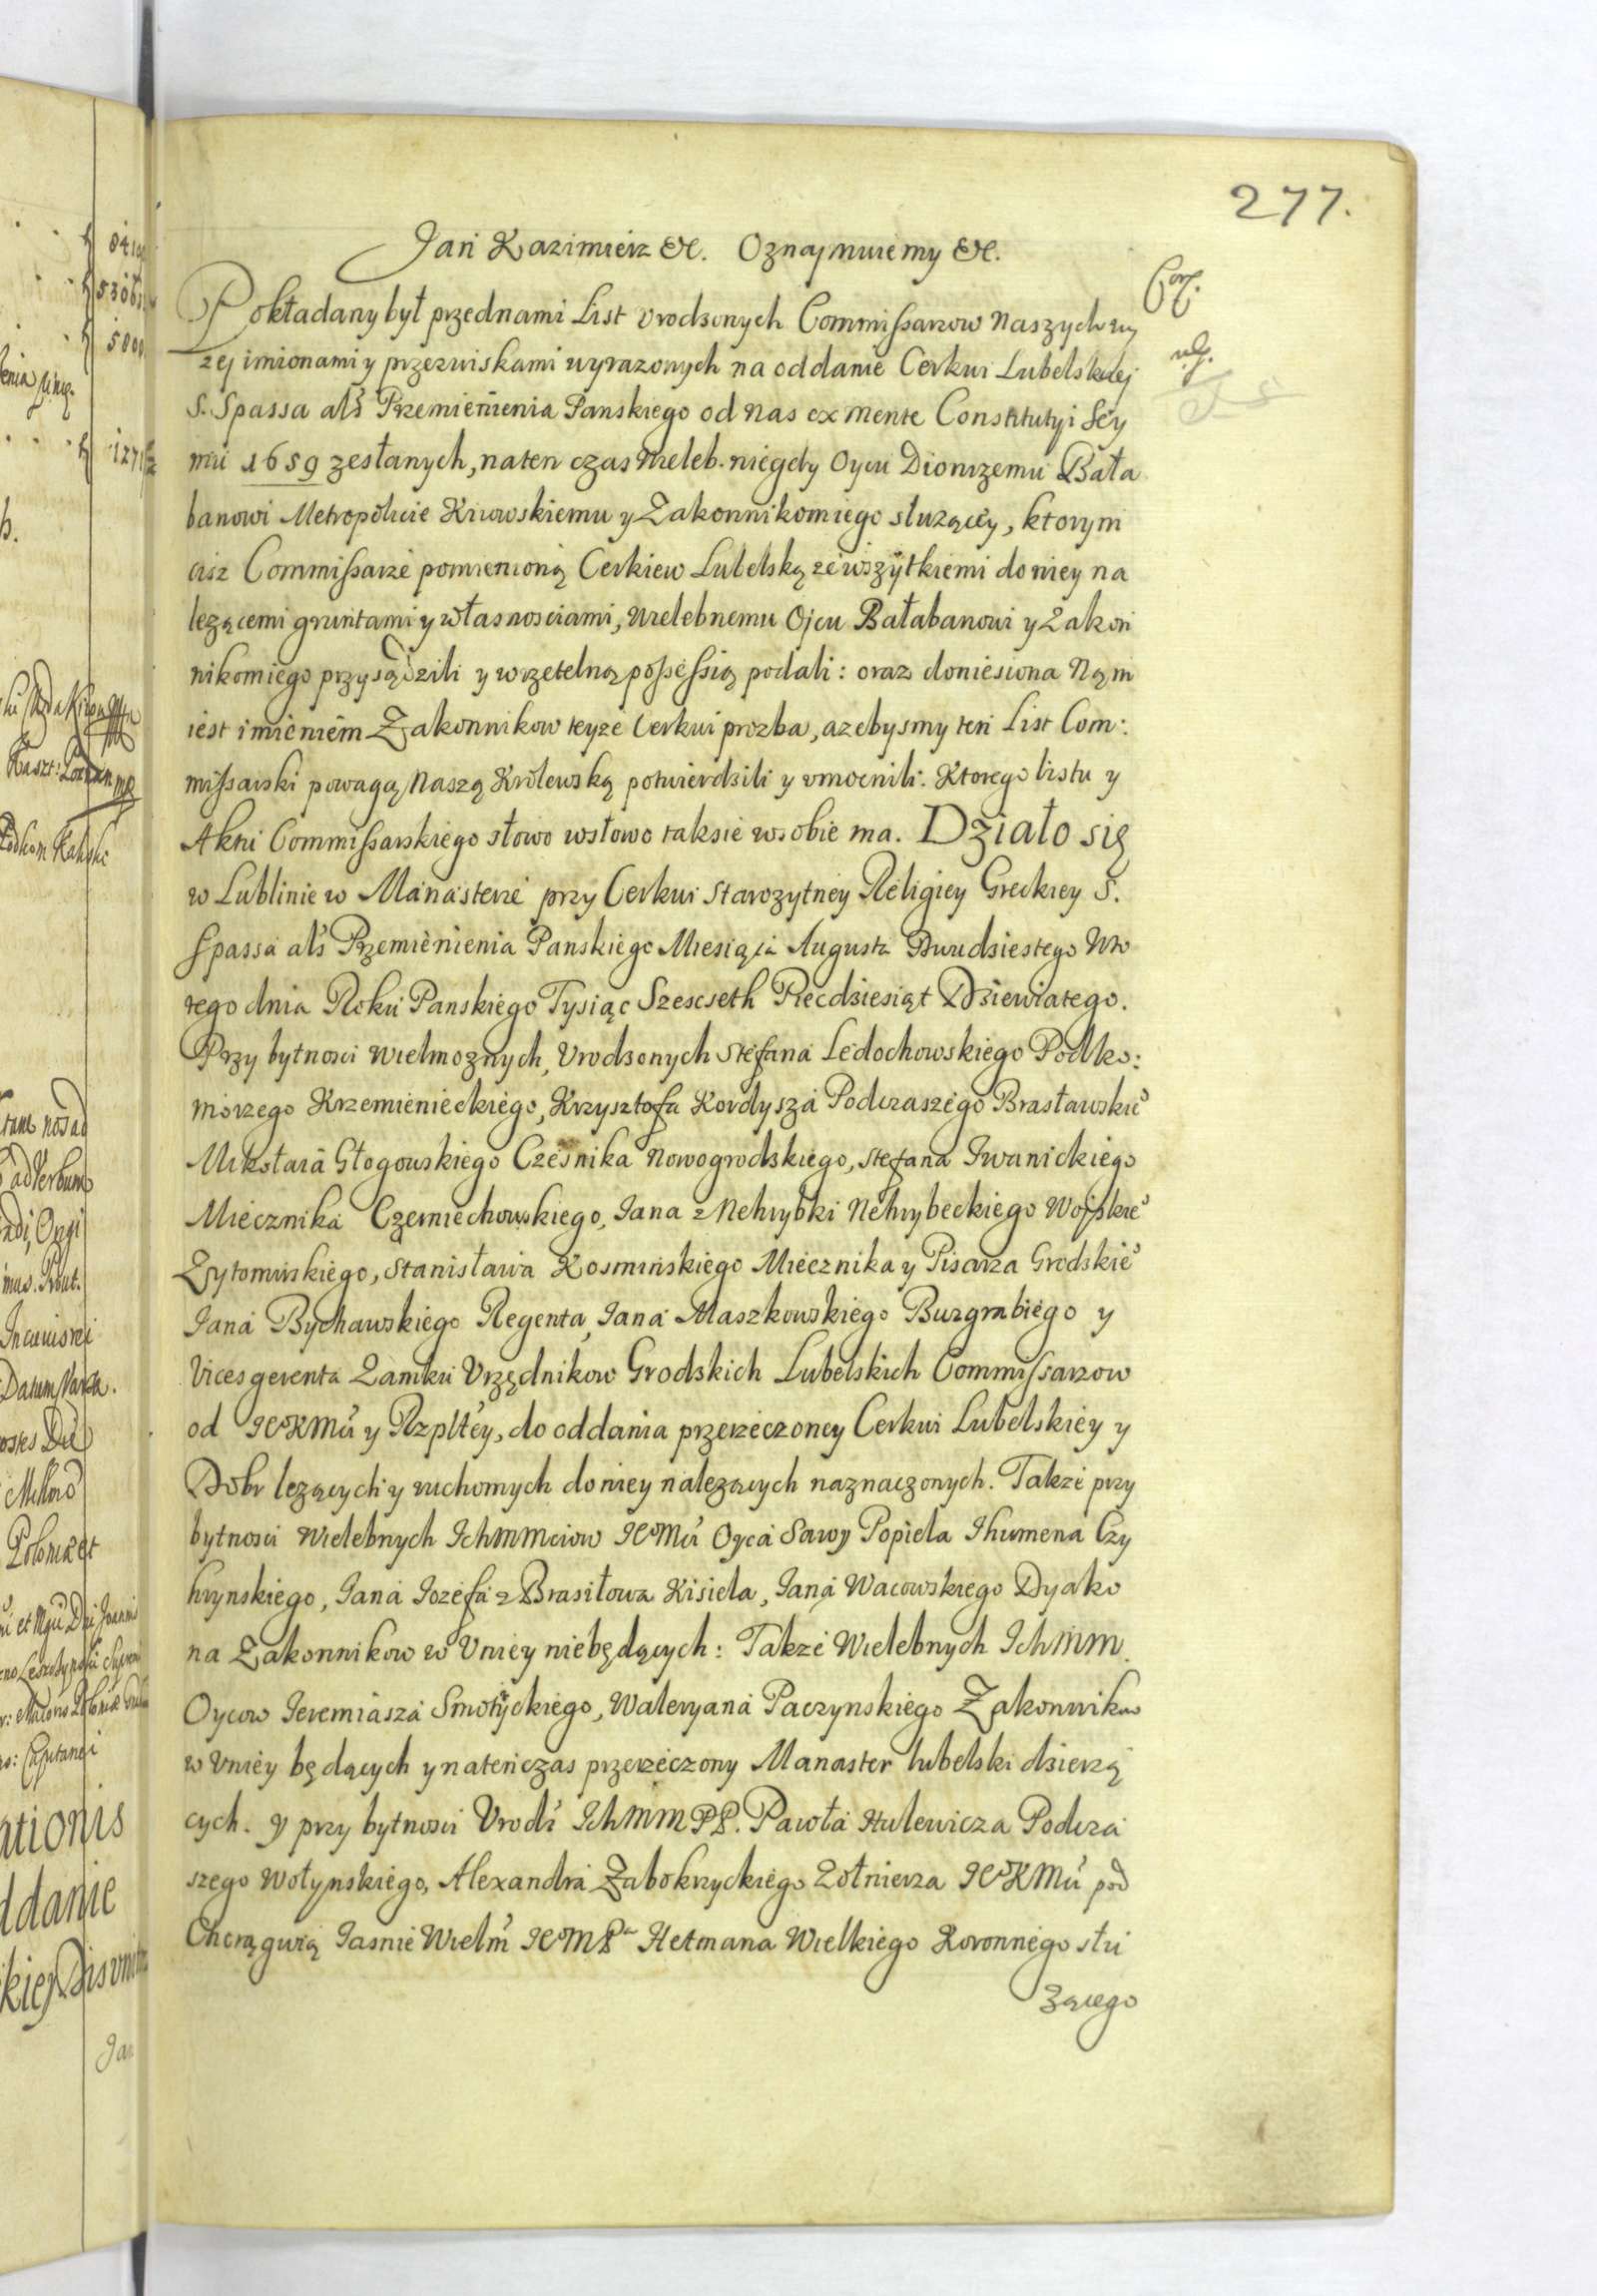 277.
Jan Kazimierz &c. Oznajmuiemy &c.
Pokładany był przed nami List vrodzonych Commissarzow Naszych wy
zej imionami y przezwiskami wyrazonych na oddanie Cerkwi Lubelskiej
S. Spassa als Przemienienia Panskiego od nas ex mente Constitutyi Sey
mu 1659 zesłanych, naten czas Wieleb. niegdy Oycu Dionizemu Bała
banowi Metropolicie Kiiowskiemu y Zakonnikom iego słuzącey, ktorym
cisz Commissarze pomienioną Cerkiew Lubelską ze wszytkiemi do niey na
lezącemi gruntami y własnosciami, Wielebnemu Ojcu Bałabanowi y Zakon
nikom iego przysądzili y wrzetelną possessią podali: oraz doniesiona Nam
iest imieniem Zakonnikow teyze Cerkwi prozba, azebysmy ten List Com:
missarski powagą Naszą Krolewską potwierdzili y vmocnili. Ktorego listu y
Aktu Commissarskiego słowo wsłowo taksie wsobie ma. Działo się
w Lublinie w Manasterze przy Cerkwi Starozytney Religiey Greckiey S.
Spassa als Przemienienia Panskiego Miesiąca Augusta Dwudziestego Wto
rego dnia Roku Panskiego Tysiąc Szescseth Piecdziesiąt Dziewiatego.
Przy bytnosci Wielmoznych, Vrodzonych Stefana Ledochowskiego Podko:
morzego Krzemienieckiego, Krzysztofa Kordysza Podczaszego Brasławskie°
Mikołaia Głogowskiego Czesnika Nowogrodskiego, Stefana Iwanickiego
Miecznika Czerniechowskiego, Jana z Nehrybki Nehrybeckiego Wojskie°
Zytomirskiego, Stanisława Kosminskiego Miecznika y Pisarza Grodskie°
Jana Bychawskiego Regenta, Jana Maszkowskiego Burgrabiego y
Vicesgerenta Zamku Vrzędnikow Grodskich Lubelskich Commissarzow
od JKMci y Rzpltey, do oddania przerzeczoney Cerkwi Lubelskiey y
Dobr lezących y ruchomych do niey nalezących naznaczonych. Takze przy
bytnosci Wielebnych Ichmmciow Oyca Sawy Popiela Ihumena Czy
hrynskiego, Jana Jozefa z Brasiłowa Kisiela, Jana Wacowskiego Dyako
na Zakonnikow w Vniey niebędących: Takze Wielebnych Ichmm.
Oycow Jeremiasza Smotyckiego, Waleryana Paczynskiego Zakonnikow
w Vniey będących y natenczas przerzeczony Manaster lubelski dzierzą
cych. y przy bytnosci Vrodz Ichmm PP. Pawła Hulewicza Podcza
szego Wołynskiego, Alexandra Zabokrzyckiego Zołnierza JKMci pod
Chorągwią Jasnie Wielm Hetmana Wielkiego Koronnego słu
zącego